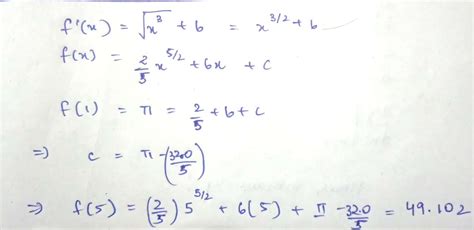 f'(x) = √x³ + 6 = x^{3/2} + 6
f(x) = 2/5 x^{5/2} + 6x + C
f(1) = π = 2/5 + 6 + C
⇒ C = π - (32.0/5)
⇒ f(5) = (2/5) 5^{5/2} + 6(5) + π - 32.0/5 = 49.102